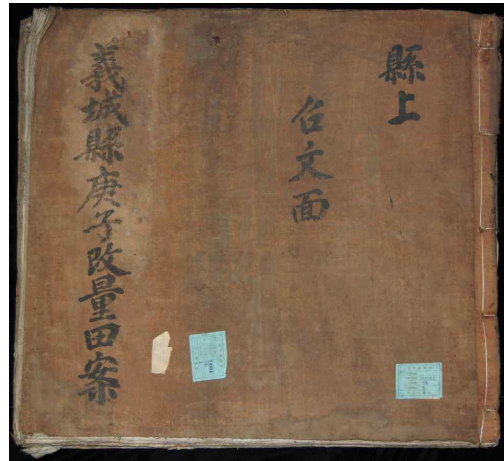 縣上
召文面
義城縣庚子改量田案